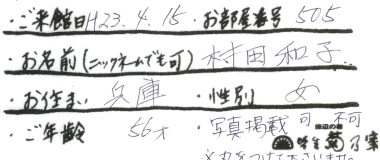 ・ご来館日 H23.4.15 ・お部屋番号 505
・お名前(ニックネームでも可) 村田和子
・お住まい 兵庫 ・性別 女
・ご年齢 56才 ・写真掲載 可 不可
渡辺の宿 味を 菊乃家
※丸をつけて下さいませ